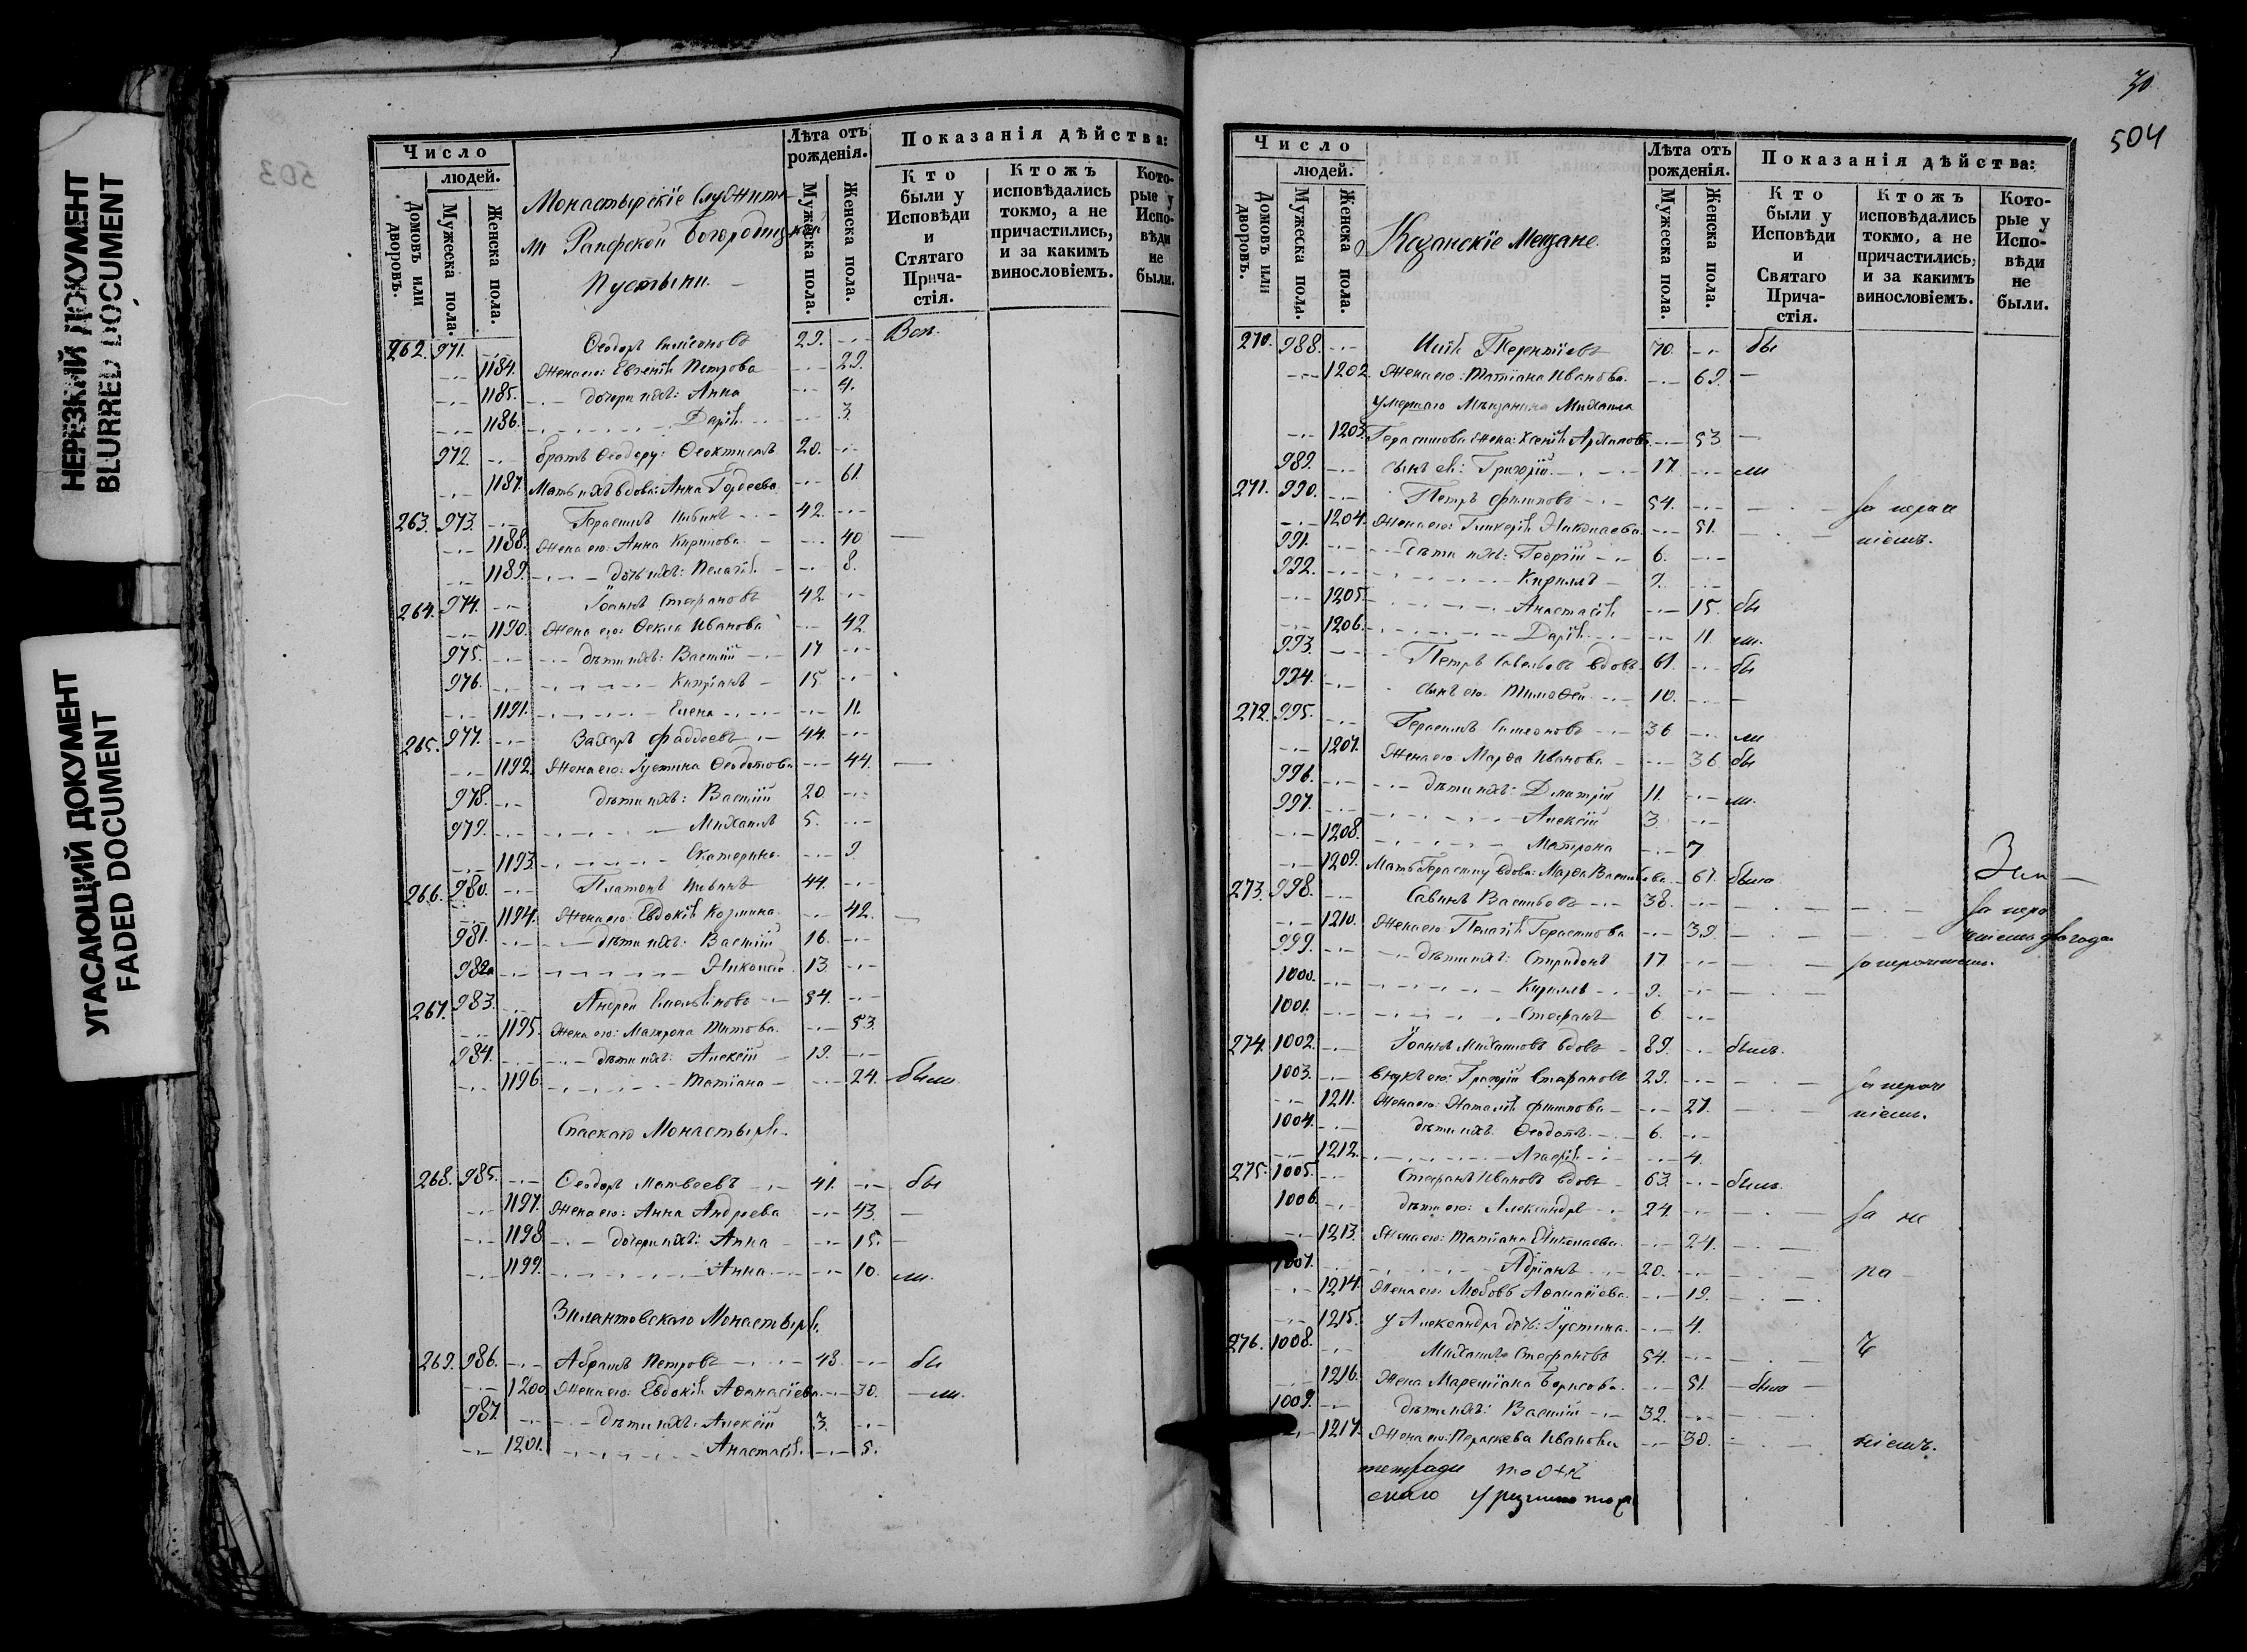 НЕРЕЗКИЙ ДОКУМЕНТ
BLURRED DOCUMENT
УГАСАЮЩИЙ ДОКУМЕНТ
FADED DOCUMENT
503
Число
людей.
Домовъ или дворовъ.
Мужеска пола.
Женска пола.
Монастырскіе Служит
ли Раифской Богородицкой
Пустыни.
Лѣта отъ рожденія.
Мужеска пола.
Женска пола.
Показанія дѣйства:
Кто были у Исповѣди и Стятаго Прича-стія.
Ктожъ исповѣдались токмо, а не причастились, и за какимъ винословіемъ.
Кото-рые у Испо-вѣди не были.
262. 971. Ѳеодоръ Симеоновъ 29. Всѣ.
1184. Жена его: Евгенія Петрова 29.
1185. дочери ихъ: Анна 4.
1186. Дарія 3.
972. братъ Ѳеодору: Ѳеоктистъ 20.
1187. Мать ихъ вдова: Анна Гордеева 61.
263. 973. Герасимъ 42.
1188. Жена его: Анна Кирилова 40
1189. дочь ихъ: Пелагія 8.
264. 974. Іоаннъ Стефановъ 42.
1190. Жена его: Ѳекла Иванова 42.
975. дѣти ихъ: Василій 17
976. Кипріанъ 15.
1191. Елена 11.
265. 977. Захаръ Фаддеевъ 44.
1192. Жена его: Іустина Ѳедотова 44.
978. дѣти ихъ: Василій 20
979. Михаилъ 5.
1193. Екатерина 9.
266. 980. Платонъ 44.
1194. Жена его: Евдокія Козмина 42.
981. дѣти ихъ: Василій 16.
982. Николай 13.
267. 983. Андрей Емельяновъ 54.
1195. Жена его: Матрона Титова. 53.
984. дѣти ихъ: Алексій 19.
1196. Татіана 24. были
Спаскаго Монастыря.
268. 985. Ѳеодоръ Матвеевъ 41. бы
1197. Жена его: Анна Андреева 43.
1198. дочери ихъ: Анна 15.
1199. Анна 10. ли.
Зилантовскаго Монастыря.
269. 986. Абрамъ Петровъ 43. бы
1200. Жена его: Евдокія Аѳанасіева 30. ли.
987. дѣти ихъ: Алексій 3.
1201. Анастасія 5.
70
504
Число
людей.
Домовъ или дворовъ.
Мужеска пола.
Женска пола.
Казанскіе Мещане.
Лѣта отъ рожденія.
Мужеска пола.
Женска пола.
Показанія дѣйства:
Кто были у Исповѣди и Святаго Прича-стія.
Ктожъ исповѣдались токмо, а не причастились, и за какимъ винословіемъ.
Кото-рые у Испо-вѣди не были.
270. 988. Терентіевъ 70. бы
1202. Жена его: Татіана Иванова. 69.
Умершаго Мещанина Михаила
1203. Герасимова жена: Ксенія Архипова 53
989. сынъ ея: Григорій 17. ли
271. 990. Петръ Филиповъ 54. За нераче
1204. Жена его: Гликерія Николаева. 51. ніемъ.
991. дѣти ихъ: Георгій 6.
992. Кирилъ 9.
1205. Анастасія 15. бы
1206. Дарія 11 ли.
993. Петръ Савельевъ вдовъ 61. бы
994. сынъ его Тимоѳей 10.
272. 995. Герасимъ Симеоновъ 36 ли
1207. Жена его: Марѳа Иванова 36 бы
996. дѣти ихъ: Димитрій 11. ли.
997. Алексій 3.
1208. Матрона 7
1209. Мать Герасиму вдова: Марѳа Васильева 67. была
273. 998. Савинъ Васильевъ 38. За нера
1210. Жена его: Пелагія Герасимова 39. ченіемъ два года
999. дѣти ихъ: Спиридонъ 17. за нераченіемъ.
1000. Кирилъ 9.
1001. Стефанъ 6
274. 1002. Іоаннъ Михайловъ вдовъ 89. былъ.
1003. внукъ его: Григорій Стефановъ 29. За нераче
1211. Жена его: Наталія Филипова 27. ніемъ.
1004. дѣти ихъ: Ѳеодотъ 6.
1212. 4.
275. 1005. Стефанъ Ивановъ вдовъ 63. былъ.
1006. дѣти его: Александръ 24. За не
1213. Жена его: Татіана Николаева. 24.
1007. Адріанъ 20. ра
1214. Жена его: Любовь Аѳанасіева. 19.
1215. у Александра дочь: Іустина. 4.
276. 1008. Михаилъ Стефановъ 54. че
1216. Жена Мареміана Борисова. 51. была
1009. дѣти ихъ: Василій 32.
1217. Жена его: Параскева Иванова 30. ніемъ.